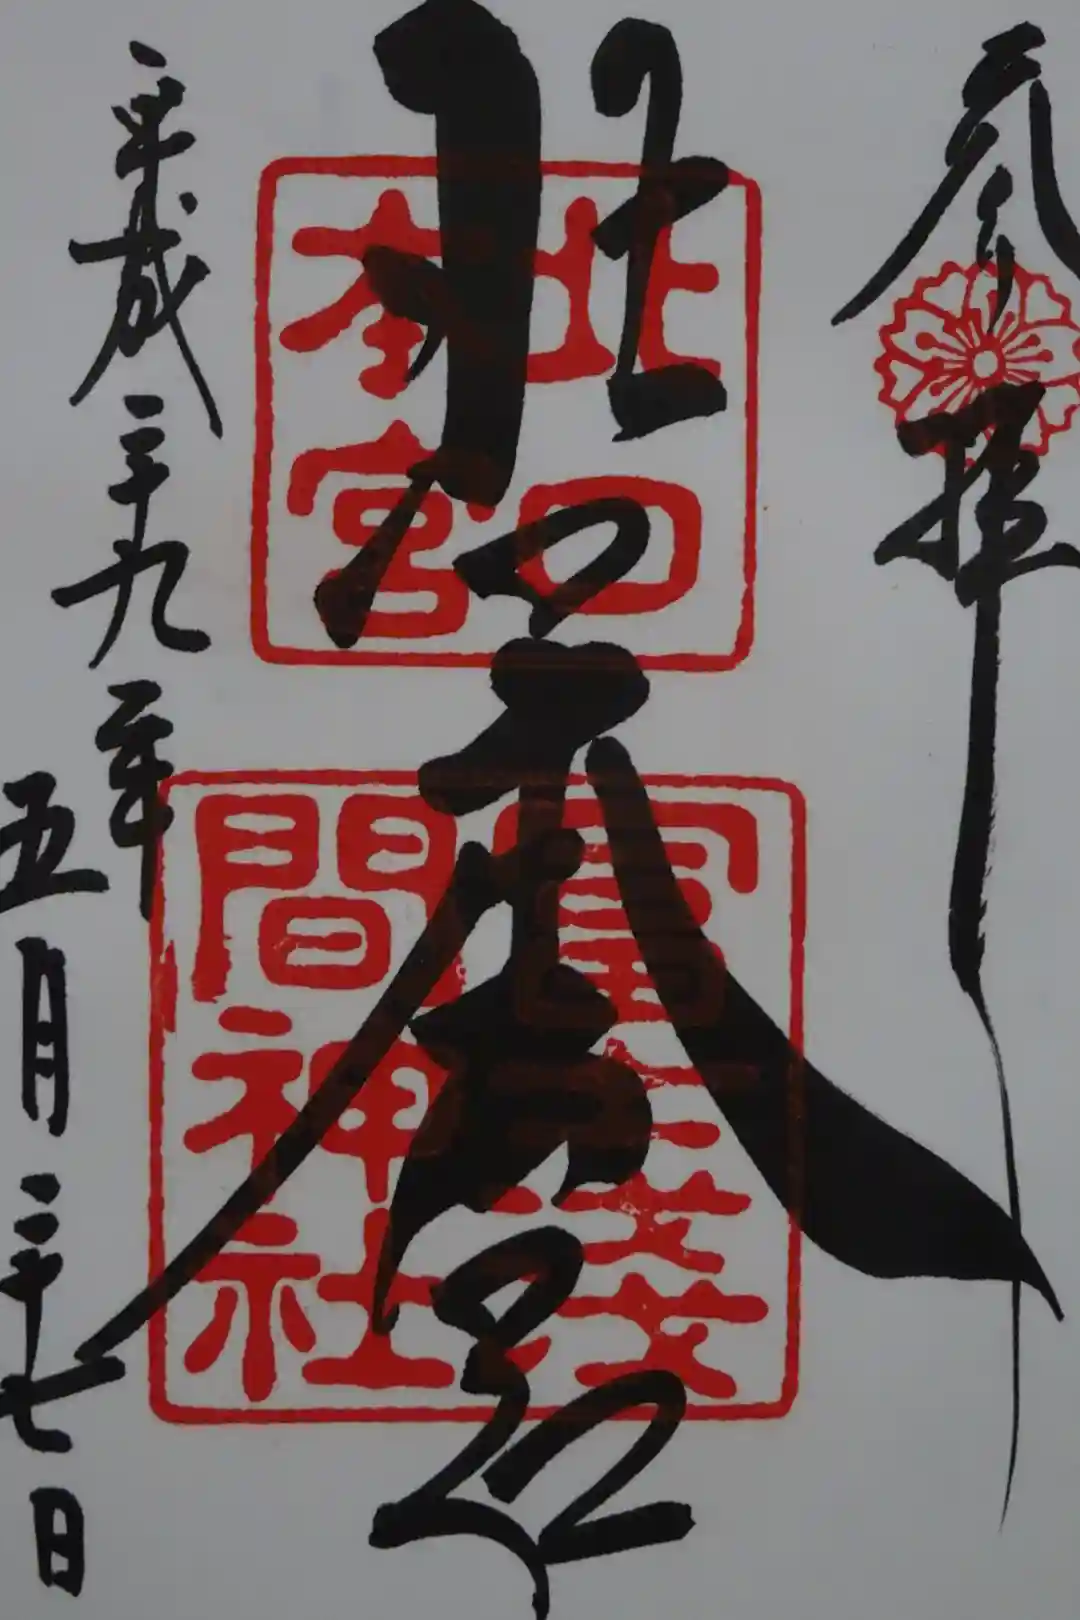 参拝
北口
本宮
北口
本宮
冨士浅
間神社
平成二十九年
五月二十七日